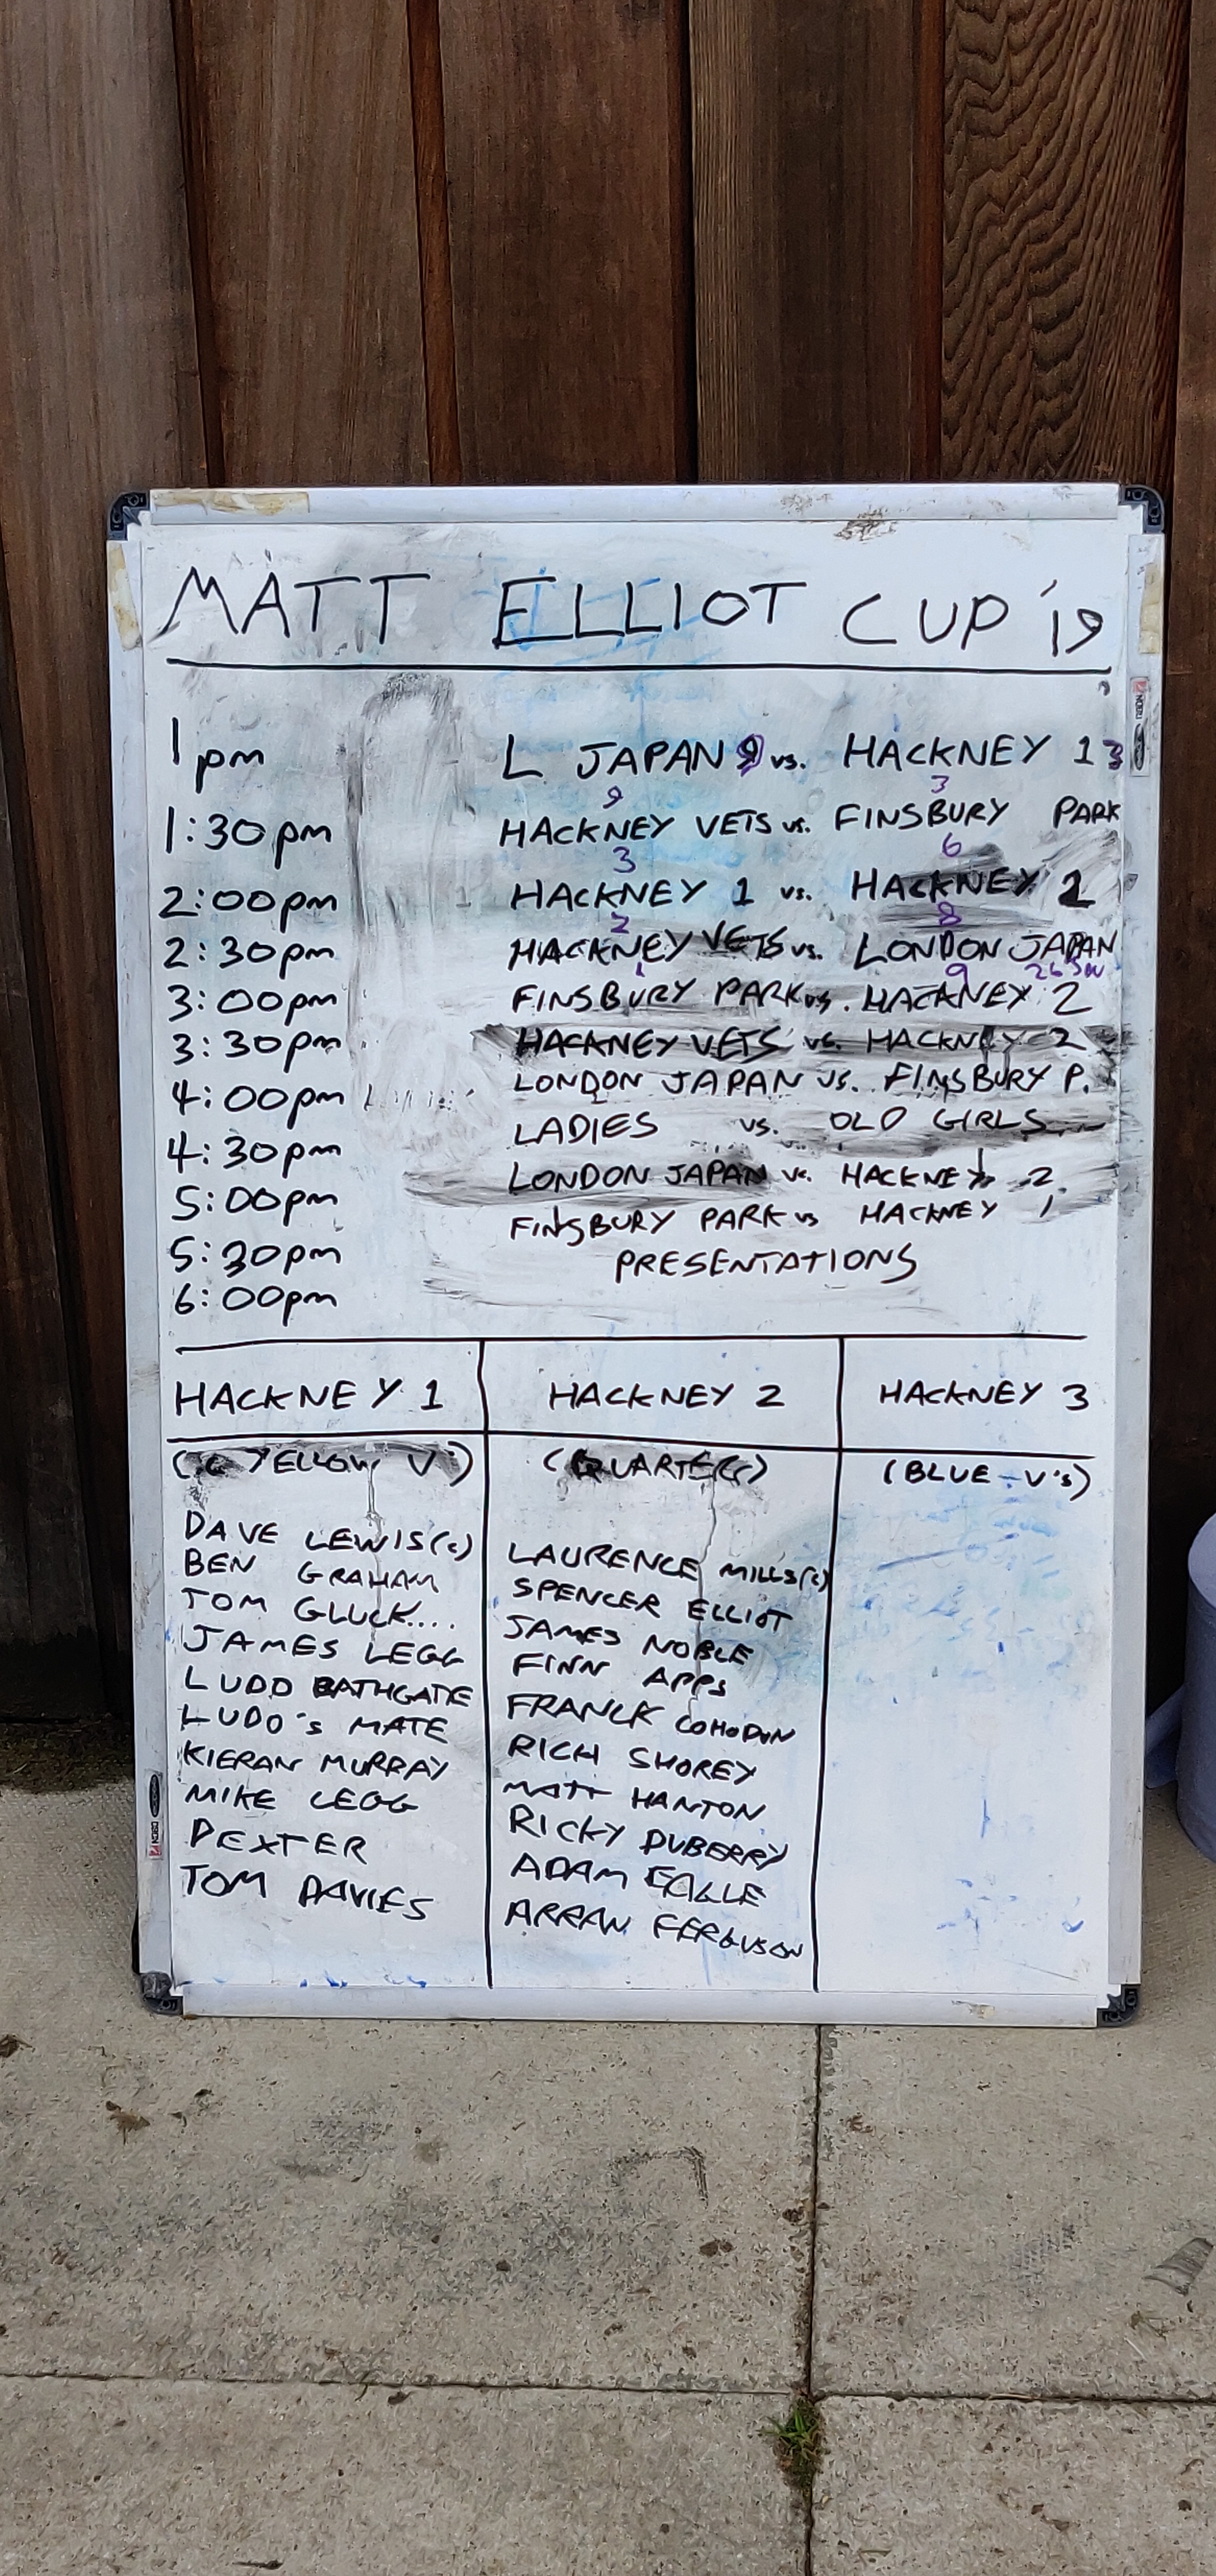 MATT ELLIOT CUP '19
1pm L JAPAN 9 vs. HACKNEY 1 3
9 3
1:30pm HACKNEY VETS vs. FINSBURY PARK
3 6
2:00pm HACKNEY 1 vs. HACKNEY 2
2 8
2:30pm HACKNEY VETS vs. LONDON JAPAN
1 9
3:00pm FINSBURY PARK vs. HACKNEY 2
3:30pm HACKNEY VETS vs. HACKNEY 2
4:00pm LONDON JAPAN vs. FINSBURY P.
4:30pm LADIES vs. OLD GIRLS
5:00pm LONDON JAPAN vs. HACKNEY 2
5:30pm FINSBURY PARK vs HACKNEY 1
6:00pm PRESENTATIONS
HACKNEY 1 HACKNEY 2 HACKNEY 3
(YELLOW V') (QUARTERS) (BLUE-V's)
DAVE LEWIS(c)
BEN GRAHAM
TOM GLUCK....
JAMES LEGG
LUDO BATHGATE
LUDO's MATE
KIERAN MURRAY
MIKE LEGG
DEXTER
TOM DAVIES
LAURENCE MILLS(c)
SPENCER ELLIOT
JAMES NOBLE
FINN APPS
FRANCK COHODON
RICH SHOREY
MATT HANTON
RICKY DUBERRY
ADAM
ARRAN FERGUSON